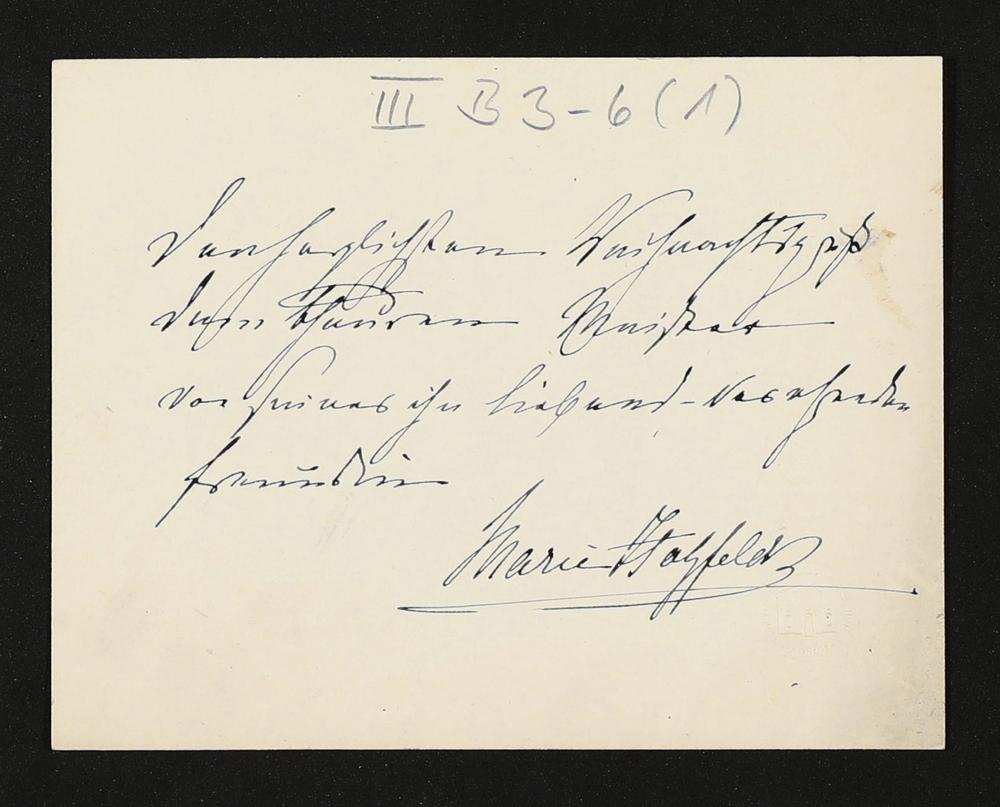 III B 3-6 (1)
Den herzlichsten Weihnachtsgruß
dem theuren Meister
von seiner ihn liebend-verehrenden
Freundin
Marie Hatzfeldt